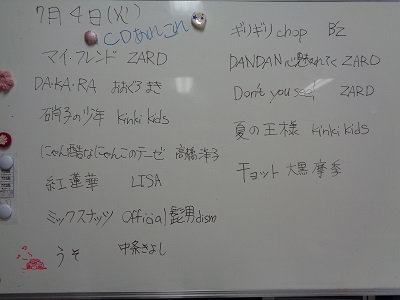 7月4日(火)
CDあれこれ
マイ・フレンド ZARD
DA・KA・RA おおぐろまき
硝子の少年 kinki kids
にゃん酷なにゃんこのテーゼ 高橋洋子
紅蓮華 LISA
ミックスナッツ Official髭男dism
うそ 中条きよし
ギリギリchop B'z
DANDAN心魅かれてく ZARD
Don't you see! ZARD
夏の王様 kinki kids
チョット 大黒摩季